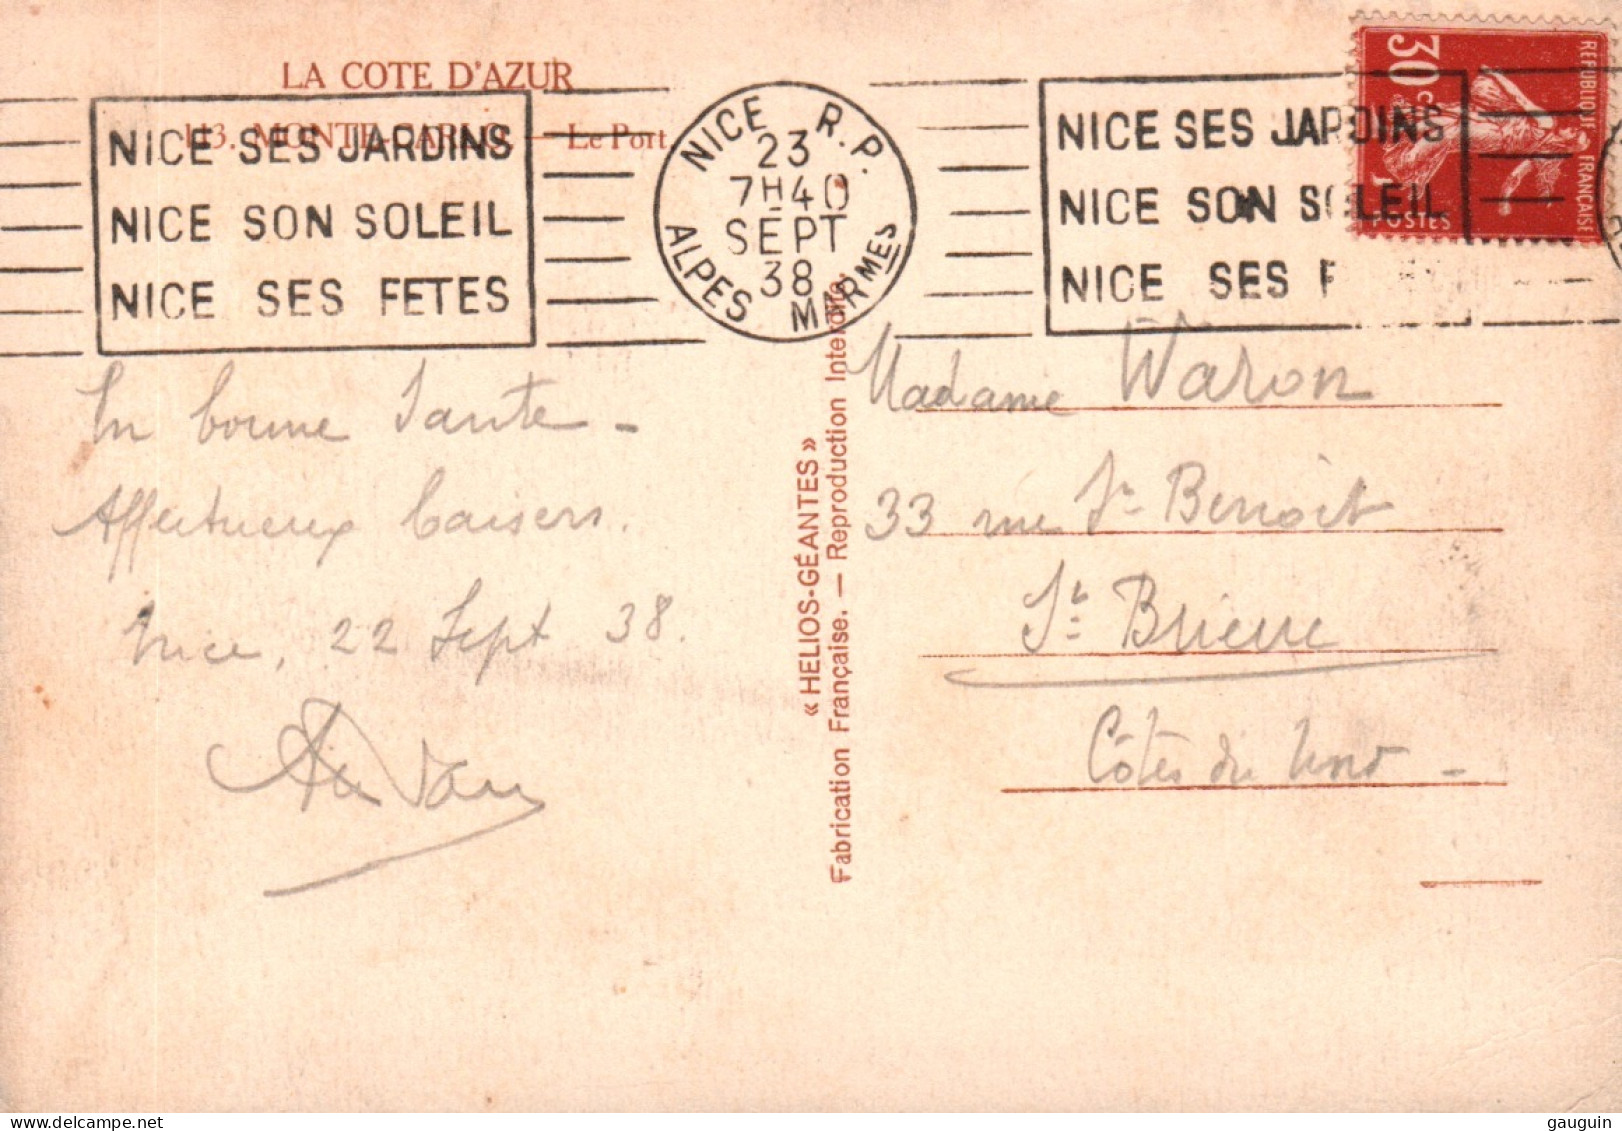 LA COTE D'AZUR
113. MONTE-CARLO. — Le Port
NICE SES JARDINS
NICE SON SOLEIL
NICE SES FETES
NICE R.P.
23
7H40
SEPT
38
ALPES MARMES
NICE SES JARDINS
NICE SON SOLEIL
NICE SES F
30 c
REPUBLIQUE FRANÇAISE
POSTES
En bonne Sante -
Affectueux baisers.
Nice, 22 Sept 38.
« HELIOS-GÉANTES »
Fabrication Française. — Reproduction Interdite.
Madame Waron
33 rue St Benoit
St Brieuc
Côtes du Nord -
gauguin